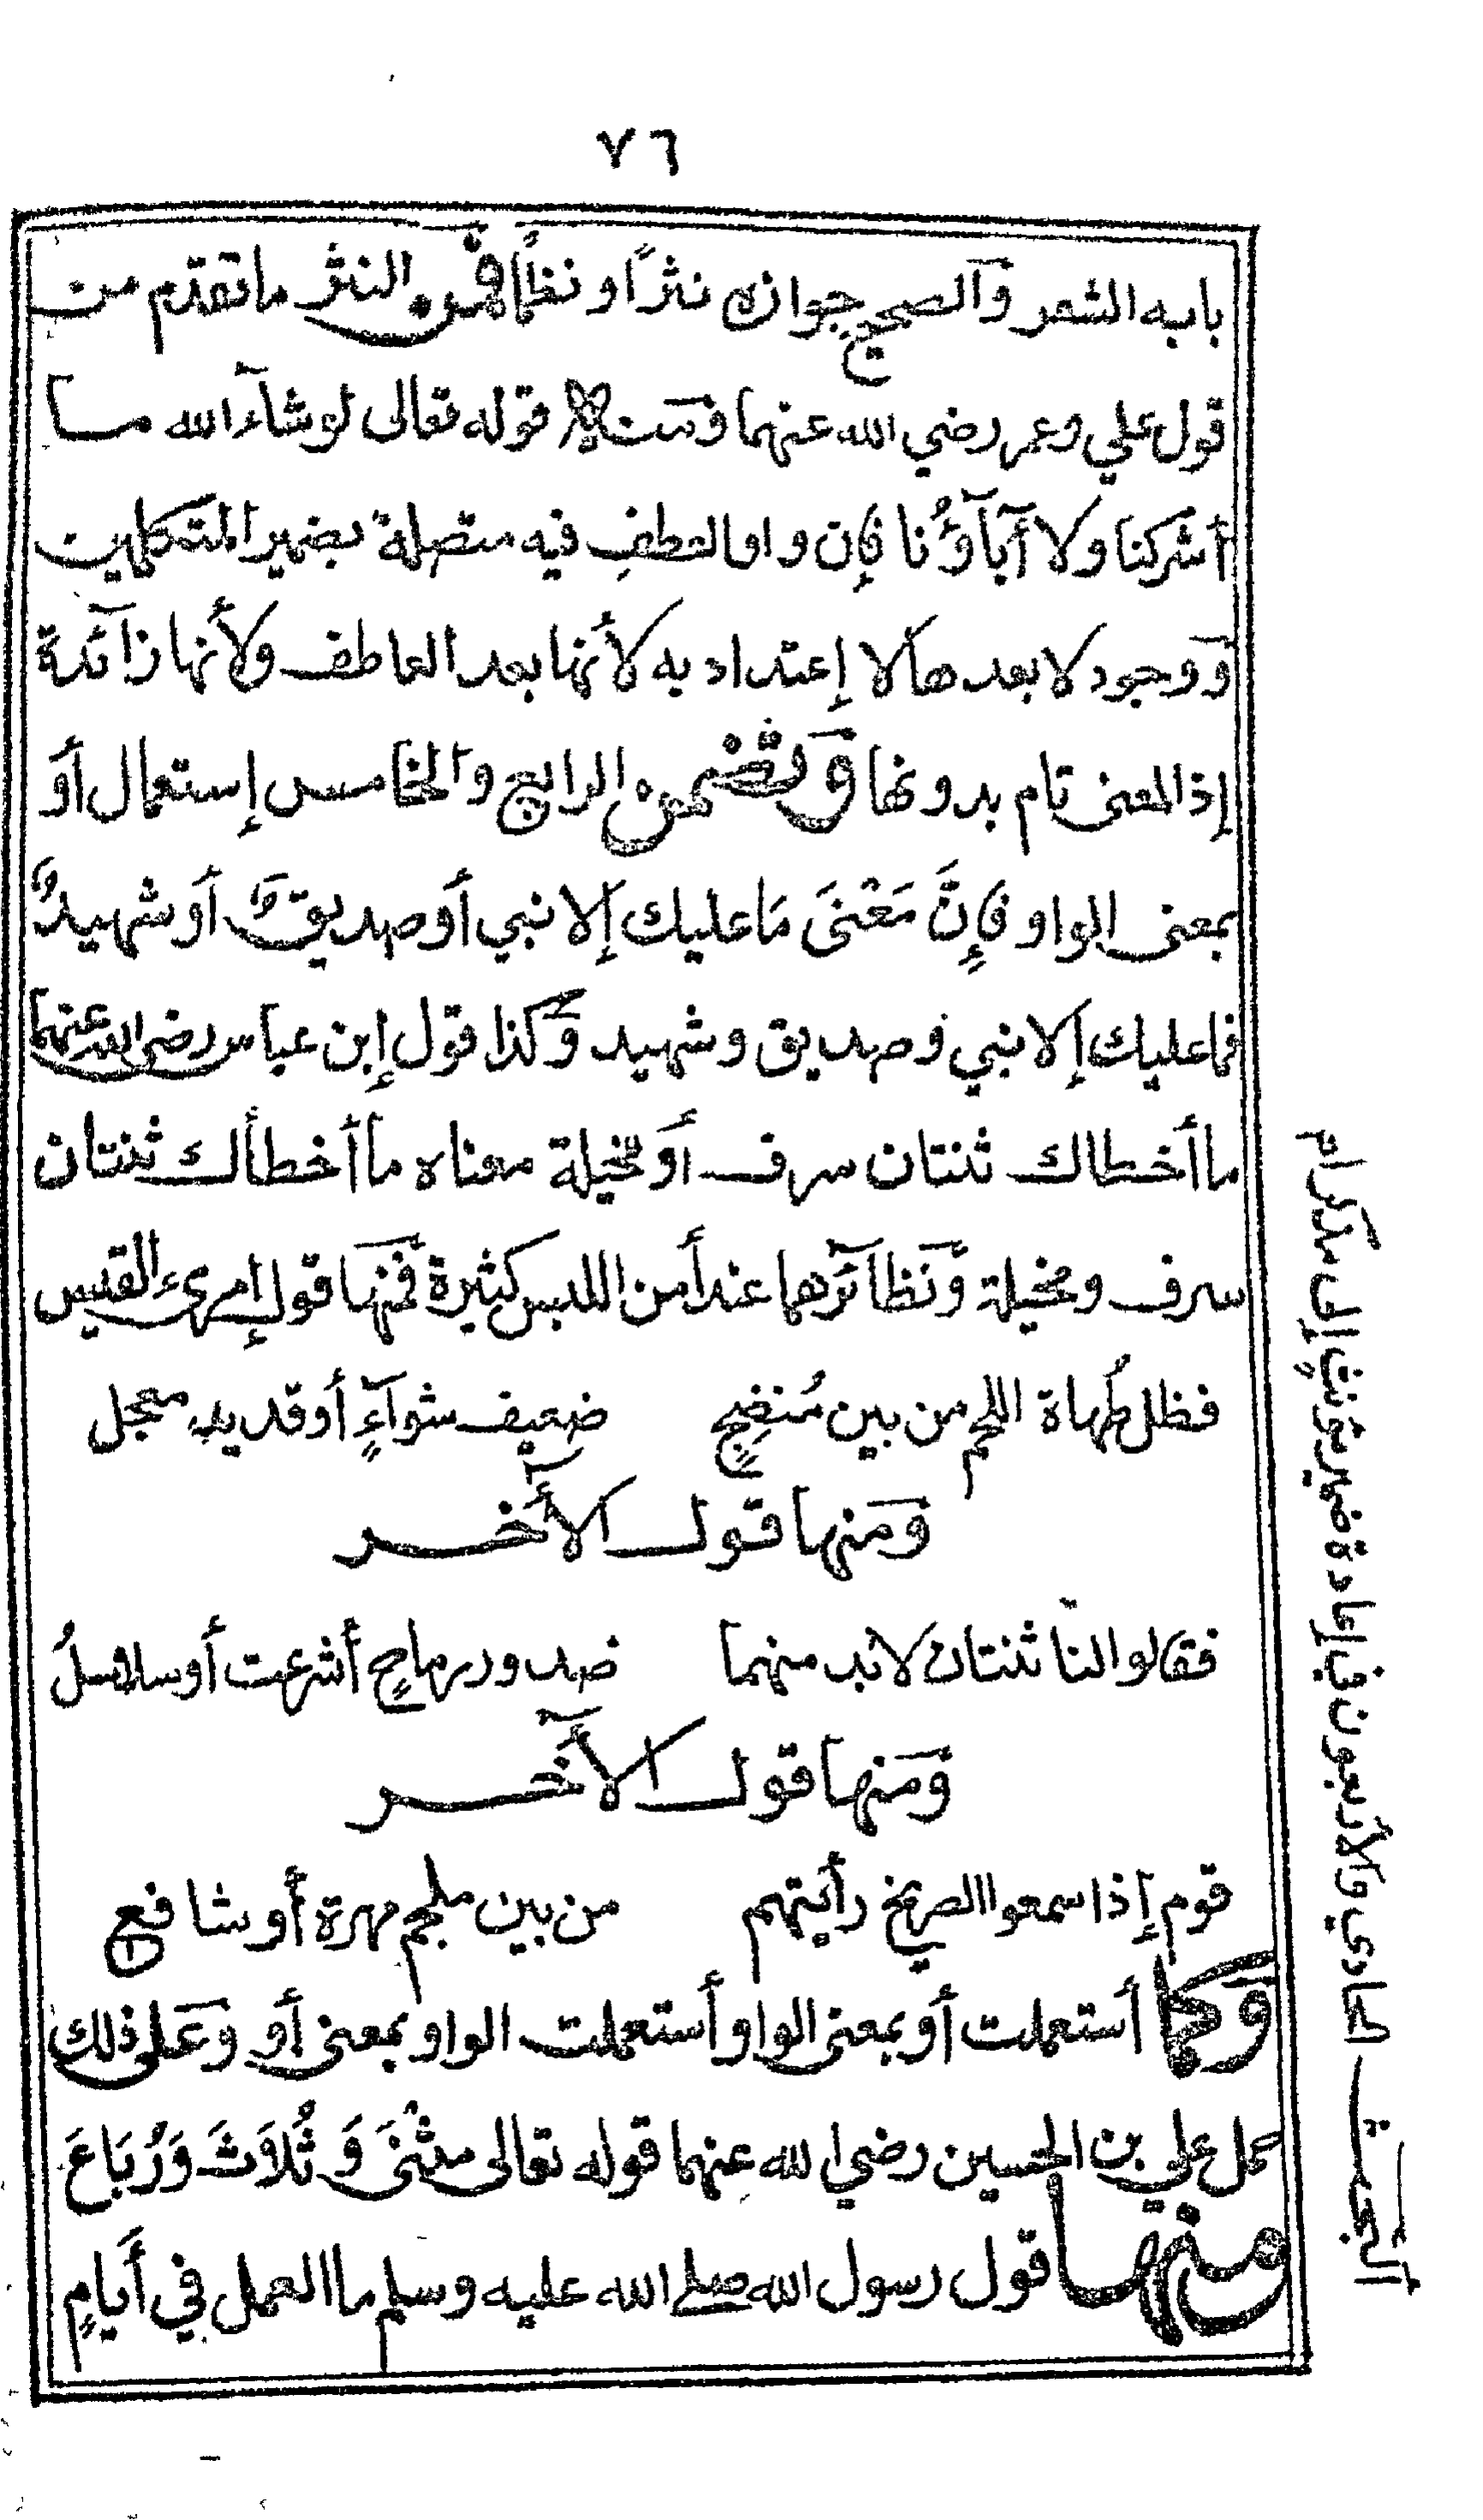 ٧٦
بابه الشعر وَالصحيح جوازه نثرًا ونظمًا فمن النثر ما تقدّم من
قول علي وعمر رضي الله عنهما وَمنه قوله تعالى لو شآء الله مـا
أشركنا ولا آبآؤُنا فإن واو العطفِ فيه متصلة بضمير المتكلمين
وَوجود لا بعدها لا إعتداد به لأنها بعد العاطف ولأنها زآئدة
إذ المعنى تام بدونها وَتضمن الرابع والخامس إستعمال أو
بمعنى الواو فإِنَّ مَعْنَى مَا عليك إلا نبي أو صديقٌ أو شهيدٌ
فما عليك إلا نبي وصديق وشهيد وَكذا قول إبن عباس رضي الله عنهما
ما أخطاك ثنتان سرف أو مخيلة معناه ما أخطأك ثنتان
سرف ومخيلة وَنَظآئرهما عند أمن اللبس كثيرة فَمِنْها قول إمرىء القيس
فظل طُهاة اللحم من بين مُنضِجٍ ضعيف شوآءٍ أو قدير معجل
وَمنها قول الآخـر
فقالوا لنا ثنتان لابد منهما صدور رماحٍ أشرعت أو سلاسلُ
وَمنها قول الآخـر
قوم إذا سمعوا الصريخ رأيتهم من بين ملجم مهرة أو سافع
وَكما أستعملت أو بمعنى الواو أستعملت الواو بمعنى أو وَعلى ذلك
حمل علي بن الحسين رضي الله عنهما قوله تعالى مثْنَى وَثُلاَثَ وَرُبَاعَ
ومنها قول رسول الله صلى الله عليه وسلم ما العمل في أيامٍ
البحث الحادي والأربعون في إعادة ضمير مؤنثٍ إلى مذكرام